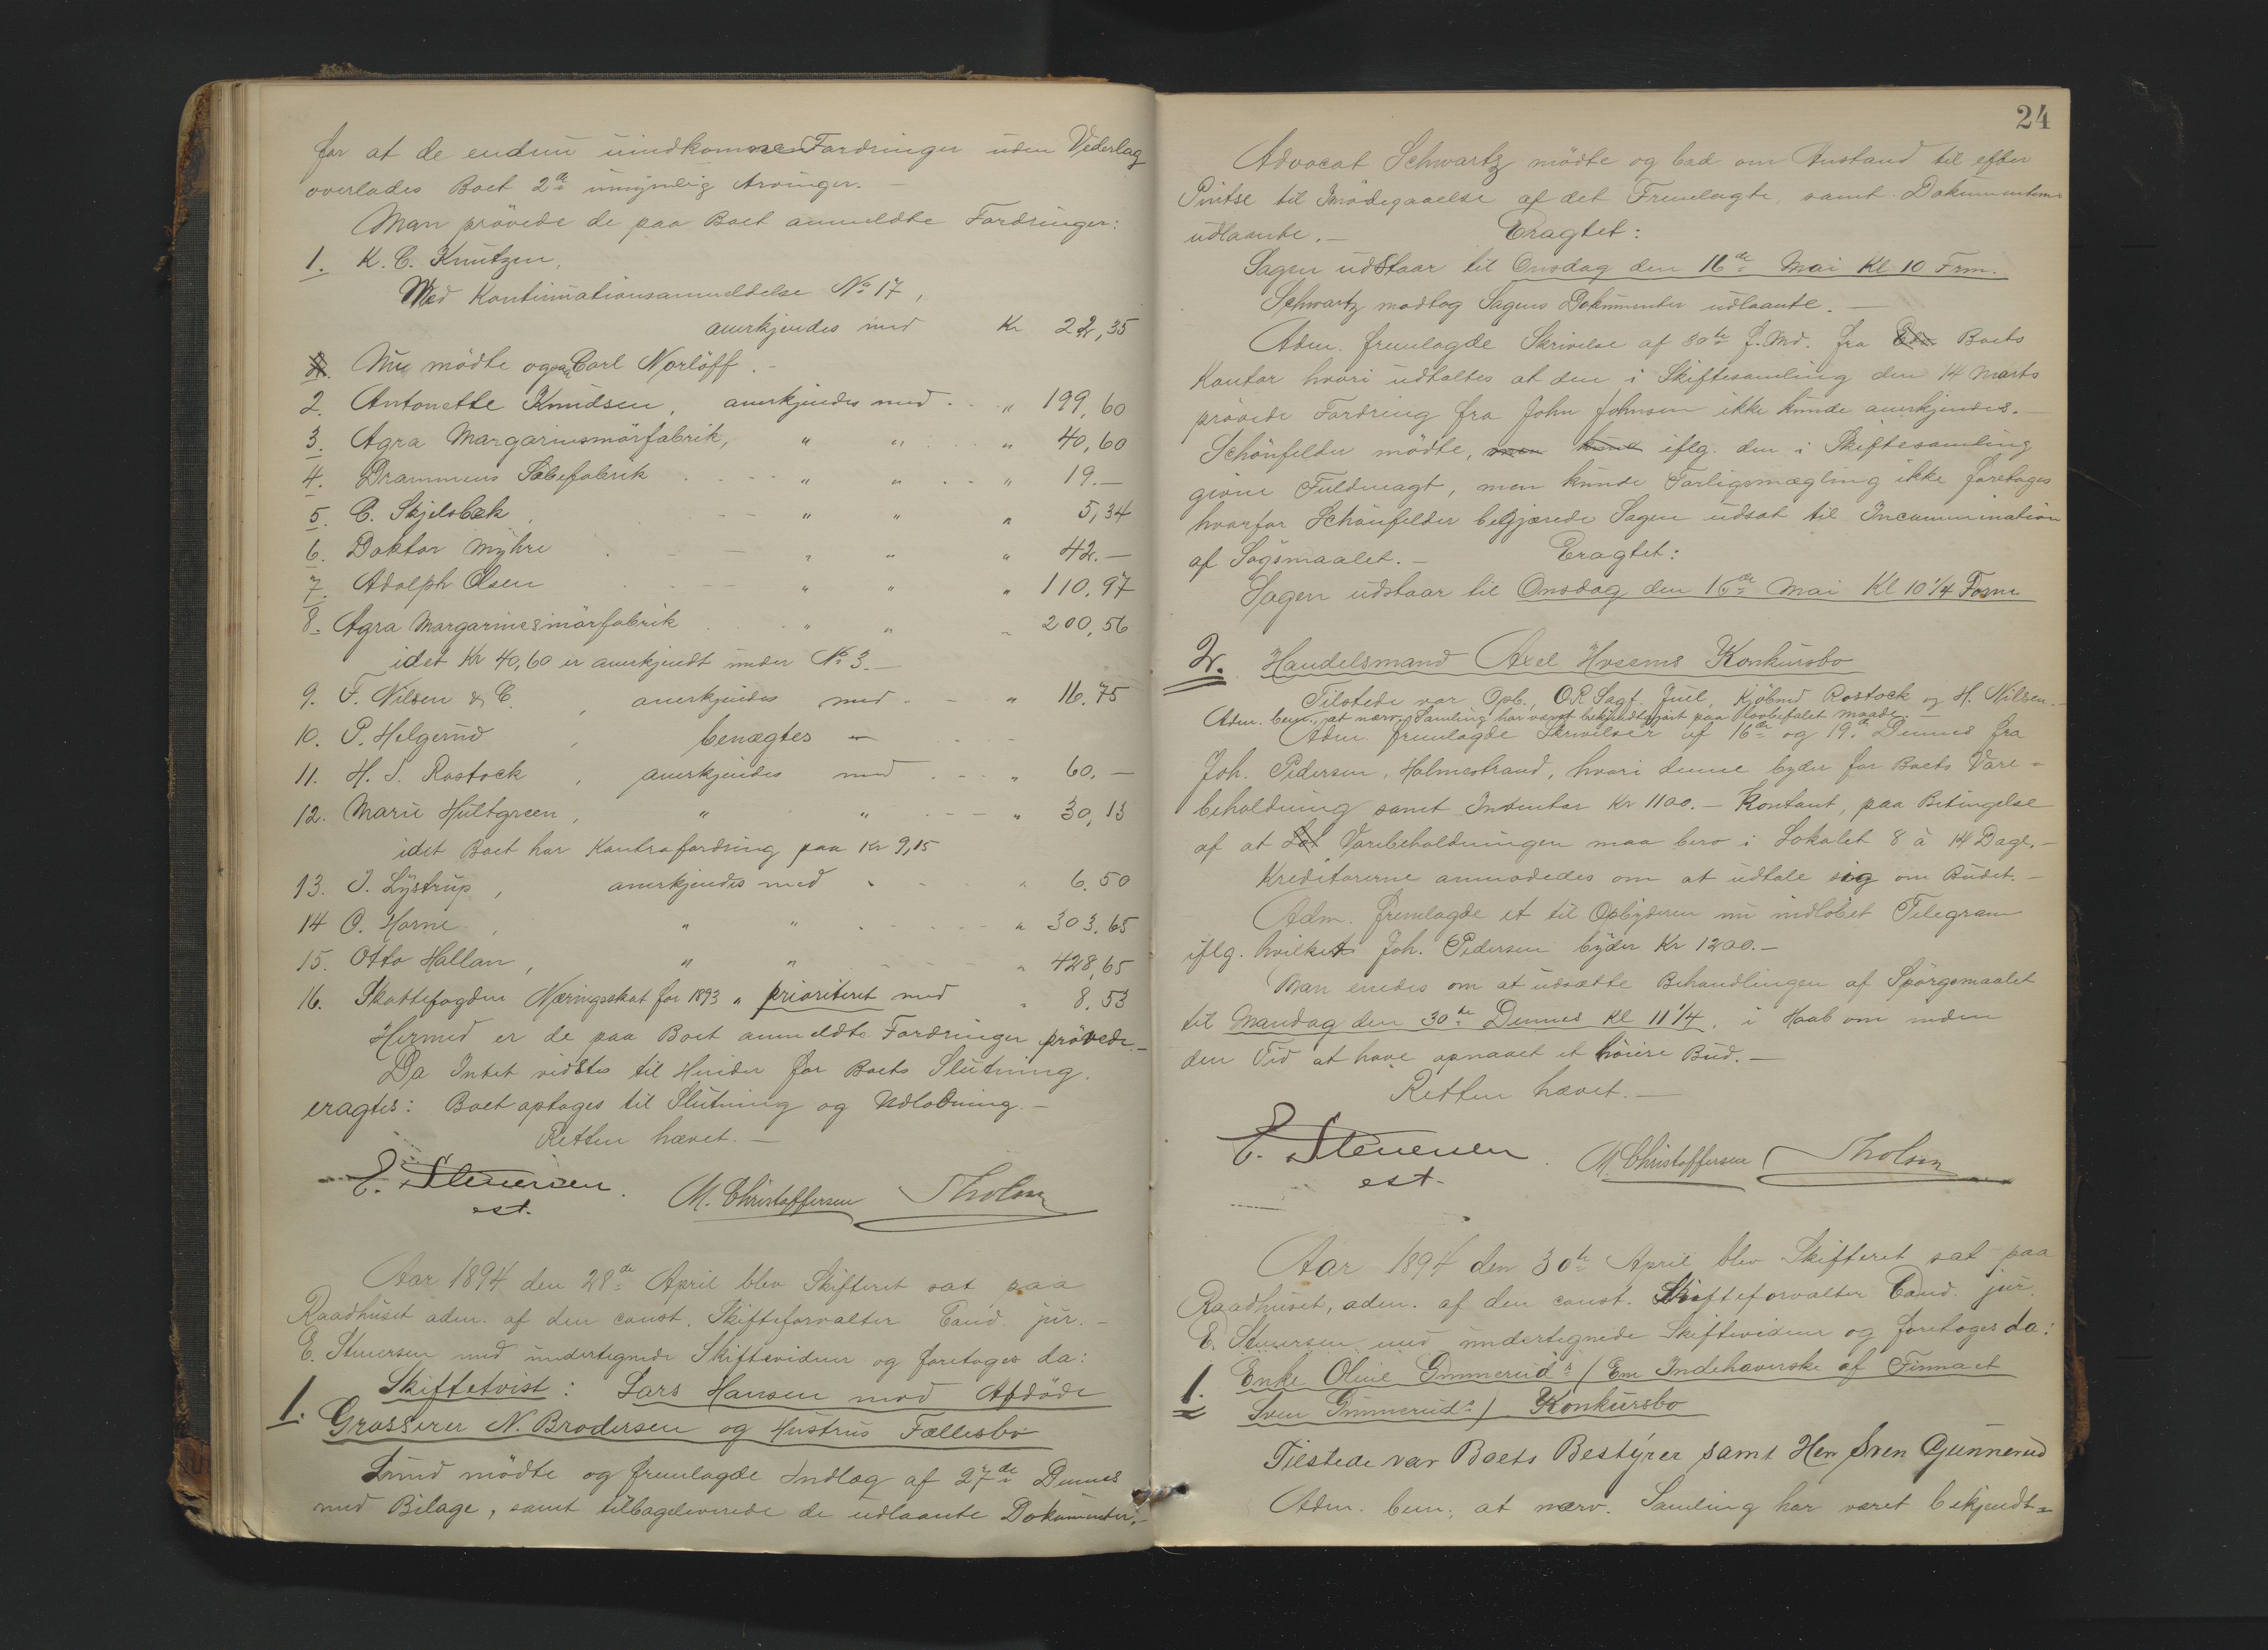 for at de endnu uindkomne Fordringer uden Vederlag
overlades Boet 2de umyndig Arvinger. —
Man prøvede de paa Boet anmeldte Fordringer:
1. K. C. Knutzen,
Med Kontinuationsanmeldelse No 17,
anerkjendes med Kr 22,35
Nu mødte ogsaa Carl Norløff. -
2. Antonette Knudsen, anerkjendes med . . " 199,60
3. Agra Margarinsmørfabrik, " " . . . " 40,60
4. Drammens Sæbefabrik . . . " " . . " 19.—
5. C. Skjelsbæk, - — " " " 5,34
6. Doktor Myhre . - — " " " 42.—
7. Adolph Olsen . - — " " " 110,97
8. Agra Margarinesmørfabrik . " " " 200,56
idet Kr 40,60 er anerkjendt under No 3. —
9. F. Nilsen & C. , anerkjendes med . - " 16.75
10. P. Helgerud , benægtes — - - -
11. H. S. Rostock , anerkjendes med . - . " 60.—
12. Marie Hultgreen, " " . - — " 30,13
idet Boet har Kontrafordring paa Kr 9,15
13. J. Lystrup, anerkjendes med . - . " 6.50
14 O. Horne , " " . - - - " 303.65
15. Otto Hallan, " " - - - " 428,65
16. Skattefogden Næringsskat for 1893 " prioriteret med " 8.53
Hermed er de paa Boet anmeldte Fordringer prøvede. —
Da Intet vidstes til Hinder for Boets Slutning.
eragtes: Boet optages til Slutning og Udlodning. —
Retten hævet. —
E. Stenersen. M. Christoffersen Tholsen
est.
Aar 1894 den 28de April blev Skifteret sat paa
Raadhuset adm. af den const. Skifteforvalter Cand. jur. —
E. Stenersen med undertegnede Skiftevidner og foretoges da:
1. Skiftetvist: Lars Hansen mod Afdøde
Grosserer N. Brodersen og Hustrus Fællesbo
Lund mødte og fremlagde Indlæg af 27de Dennes
med Bilage, samt tilbageleverede de udlaante Dokumenter. —
24
Advocat Schwartz mødte og bad om Anstand til efter
Pintse til Imødegaaelse af det Fremlagte, samt Dokumenterne
udlaante. — Eragtet:
Sagen udstaar til Onsdag den 16de Mai Kl. 10 Frm.
Schwartz modtog Sagens Dokumenter udlaante. —
Adm. fremlagde Skrivelse af 30te f. Md. fra Boets
Kurator hvori udtaltes at den i Skiftesamling den 14 Marts
prøvede Fordring fra John Johnsen ikke kunde anerkjendes.
Schønfelder mødte, men kunde iflg. den i Skiftesamling
givne Fuldmagt, men kunde Forligsmægling ikke foretages
hvorfor Schønfelder begjærede Sagen udsat til Incammination
af Søgsmaalet. — Eragtet:
Sagen udstaar til Onsdag den 16de Mai Kl 10 1/4 Form
2. Handelsmand Axel Hvsems Konkursbo
Tilstede var Opb., O.R. Sagf. Juel, Kjøbmd Rostock og H. Nilsen. —
Adm. bem. at nærv. Samling har været bekjendtgjort paa lovbefalet Maade. —
Adm. fremlagde Skrivelser af 16de og 19de Dennes fra
Joh. Pedersen, Holmestrand, hvori denne byder for Boets Vare=
beholdning samt Inventar Kr 1100. — Kontant, paa Betingelse
af at Varebeholdningen maa bero i Lokalet 8 à 14 Dage. —
Kreditorerne anmodedes om at udtale sig om Budet. —
Adm. fremlagde et til Opbyderen nu indløbet Telegram
iflg. hvilket Joh. Pedersen byder Kr 1200. —
Man enedes om at udsætte Behandlingen af Spørgsmaalet
til Mandag den 30te Dennes Kl 11 1/4, i Haab om inden
den Tid at have opnaaet et høiere Bud. —
Retten hævet. —
E. Stenersen. M. Christoffersen Tholsen
est.
Aar 1894 den 30te April blev Skifteret sat paa
Raadhuset, adm. af den const. Skifteforvalter Cand. jur.
E. Stenersen med undertegnede Skiftevidner og foretoges da:
1. Enke Oline Gunneruds (Em Indehaverske af Firmaet
Sven Gunneruds) Konkursbo
Tilstede var Boets Bestyrer samt Herr Sven Gunnerud
Adm. bem. at nærv. Samling har været bekjendt=